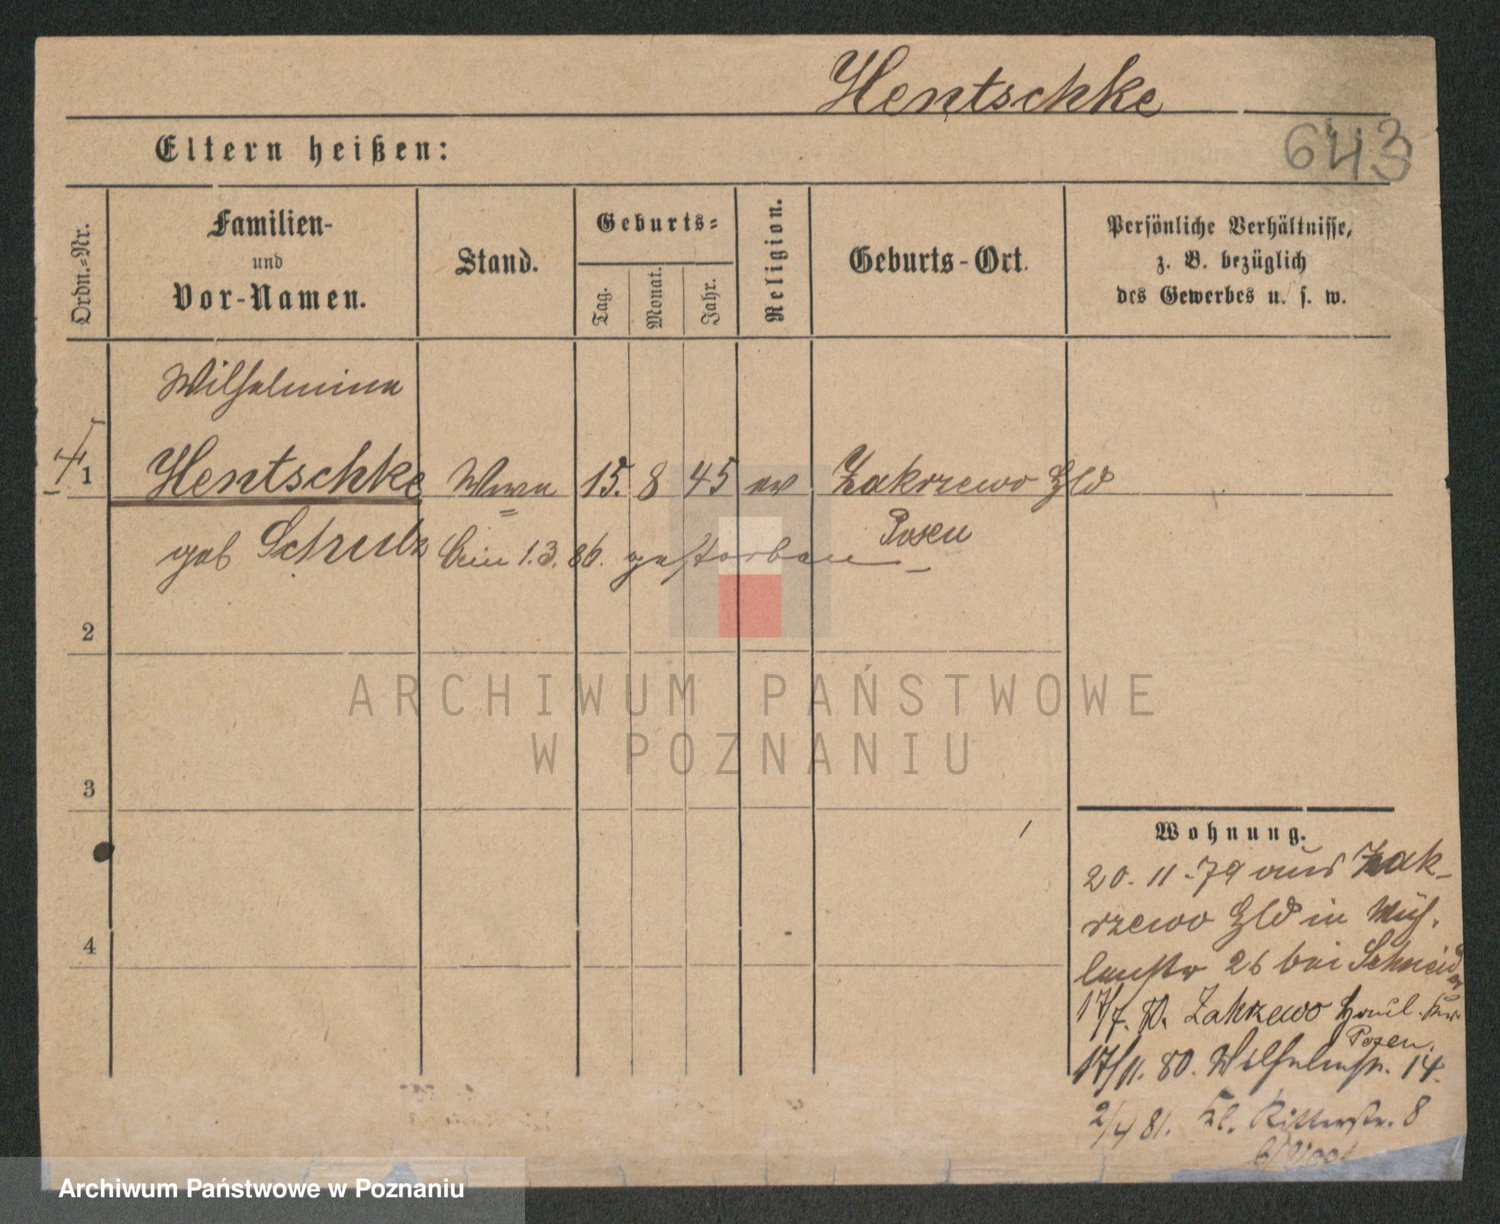 Hentschke
643
Eltern heißen:
Ordn.-Nr.
Familien-
und
Vor-Namen.
Stand.
Geburts-
Tag.
Monat.
Jahr.
Religion.
Geburts-Ort.
Persönliche Verhältnisse,
z. B. bezüglich
des Gewerbes u. s. w.
Wilhelmine
1 Hentschke Wwe 15. 8 45 ev Zakrzewo Hld
Posen
geb Schulz 1.3.86. gestorben
2
3
4
Wohnung.
20.11.79 aus Zak-
rzewo Hld in Müh-
lenstr 26 bei Schneider
17/7. 80. Zakrzewo Haul. Kr.
Posen.
17/11. 80. Wilhelmstr. 14.
2/4 81. Kl. Ritterstr. 8
ARCHIWUM PAŃSTWOWE
W POZNANIU
Archiwum Państwowe w Poznaniu